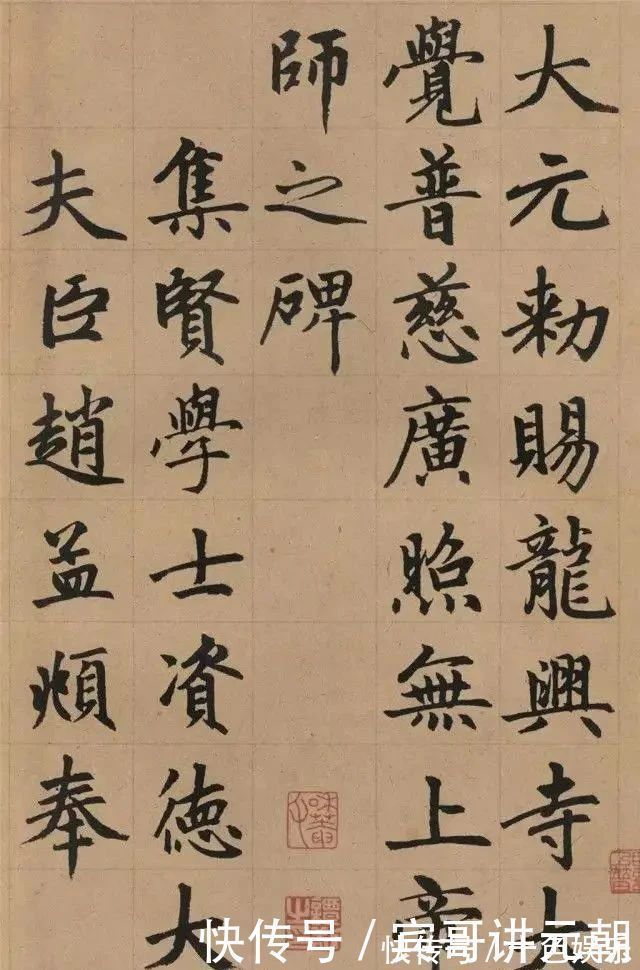 大元勅賜龍興寺大
覺普慈廣照無上帝
師之碑
集賢學士資德大
夫臣趙孟頫奉
快传号 / 哥讲元朝
快传号